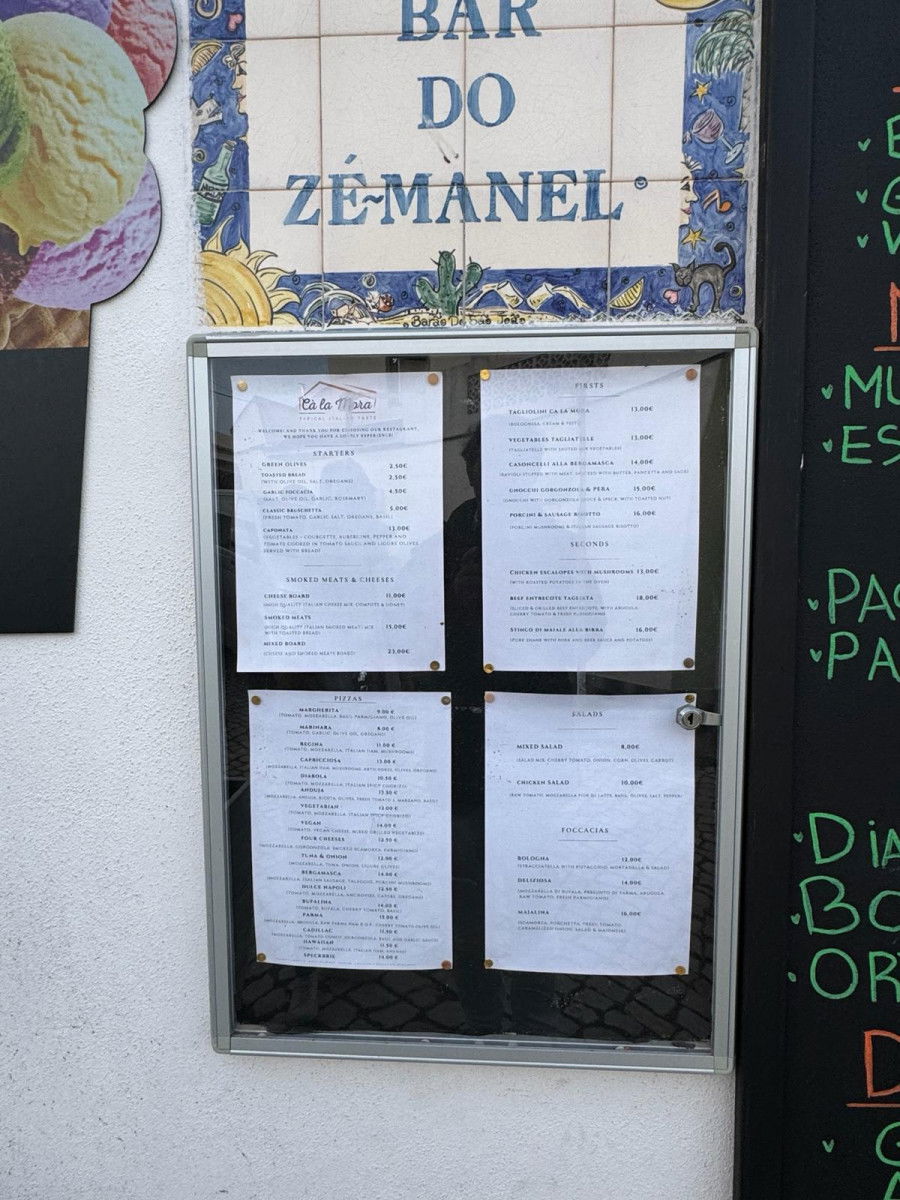 BAR
DO
ZÉ-MANEL
Cà la Mora
TYPICAL ITALIAN TASTE
WELCOME! AND THANK YOU FOR CHOOSING OUR RESTAURANT,
WE HOPE YOU HAVE A LOVELY EXPERIENCE!
STARTERS
GREEN OLIVES 2,50€
TOASTED BREAD 2,50€
(WITH OLIVE OIL, SALT, OREGANO)
GARLIC FOCCACIA 4,50€
(SALT, OLIVE OIL, GARLIC, ROSEMARY)
CLASSIC BRUSCHETTA 5,00€
(FRESH TOMATO, GARLIC, SALT, OREGANO, BASIL)
CAPONATA 13,00€
(VEGETABLES - COURGETTE, AUBERGINE, PEPPER AND
TOMATO COOKED IN TOMATO SAUCE AND LIGURE OLIVES
SERVED WITH BREAD)
SMOKED MEATS & CHEESES
CHEESE BOARD 11,00€
(HIGH QUALITY ITALIAN CHEESE MIX, COMPOTE & HONEY)
SMOKED MEATS
(HIGH QUALITY ITALIAN SMOKED MEATS MIX 15,00€
WITH TOASTED BREAD)
MIXED BOARD
(CHEESE AND SMOKED MEATS BOARD) 23,00€
FIRSTS
TAGLIOLINI CA LA MORA 13,00€
(BOLOGNESA, CREAM & PESTO)
VEGETABLES TAGLIATELLE 13,00€
(TAGLIATELLE WITH SAUTED VEGETABLES)
CASONCELLI ALLA BERGAMASCA 14,00€
(RAVIOLI STUFFED WITH MEAT, SAUCED WITH BUTTER, PANCETTA AND SAGE)
GNOCCHI GORGONZOLA & PERA 15,00€
(GNOCCHI WITH GORGONZOLA SAUCE & SPICK, WITH TOASTED NUT)
PORCINI & SAUSAGE RISOTTO 16,00€
(PORCINI MUSHROOM & ITALIAN SAUSAGE RISOTTO)
SECONDS
CHICKEN ESCALOPES WITH MUSHROOMS 13,00€
(WITH ROASTED POTATOES IN THE OVEN)
BEEF ENTRECOTE TAGLIATA 18,00€
(SLICED & GRILLED BEEF ENTRECOTE, WITH ARUGULA,
CHERRY TOMATO & FRESH PARMIGIANO)
STINCO DI MAIALE ALLA BIRRA 16,00€
(PORK SHANK WITH PORK AND BEER SAUCE AND POTATOES)
PIZZAS
MARGHERITA 9.00 €
(TOMATO, MOZZARELLA, BASIL PARMIGIANO, OLIVE OIL)
MARINARA 8.00 €
(TOMATO, GARLIC, OLIVE OIL, OREGANO)
REGINA 11.00 €
(TOMATO, MOZZARELLA, ITALIAN HAM, MUSHROOMS)
CAPRICCIOSA 13.00 €
(MOZZARELLA, ITALIAN HAM, MUSHROOM, ARTICHOKE, OLIVES, OREGANO)
DIABOLA 10.50 €
(TOMATO, MOZZARELLA, ITALIAN SPICY CHORIZO)
ANDUJA 13.50 €
VEGETARIAN 12.00 €
(TOMATO, MOZZARELLA, ITALIAN SPICY CHORIZO)
VEGAN 14.00 €
(TOMATO, VEGAN CHEESE, MIXED GRILLED VEGETABLES)
FOUR CHEESES 12.50 €
(MOZZARELLA, GORGONZOLA, SMOKED SCAMORZA, PARMIGIANO)
TUNA & ONION 12.00 €
(MOZZARELLA, TUNA, ONION, LIGURE OLIVES)
BERGAMASCA 14.00 €
(MOZZARELLA, ITALIAN SAUSAGE, TALEGGIO, PORCINI MUSHROOMS)
DULCE NAPOLI 12.50 €
(TOMATO, MOZZARELLA, ANCHOVIES, CAPERS, OREGANO)
BUFALINA 14.00 €
(TOMATO, BUFALA, CHERRY TOMATO, BASIL)
PARMA 15.00 €
CADILLAC 11.50 €
HAWAIIAN 11.50 €
(TOMATO, MOZZARELLA, ITALIAN HAM, ANANAS)
SPECKBRIE 14.00 €
SALADS
MIXED SALAD 8,00€
(SALAD MIX, CHERRY TOMATO, ONION, CORN, OLIVES, CARROT)
CHICKEN SALAD 10,00€
(RAW TOMATO, MOZZARELLA FIOR DI LATTE, BASIL, OLIVES, SALT, PEPPER)
FOCCACIAS
BOLOGNA 12,00€
(STRACCIATELLA WITH PISTACCHIO, MORTADELLA & SALAD)
DELIZIOSA 14,00€
(MOZZARELLA DI BUFALA, PRESUNTO DI PARMA, ARUGULA
RAW TOMATO, FRESH PARMIGIANO)
MAIALINA 16,00€
(SCAMORZA, PORCHETTA, FRESH TOMATO,
CARAMELIZED ONION, SALAD & MAIONESE)
MU
ES
PA
DiA
BO
OR
D